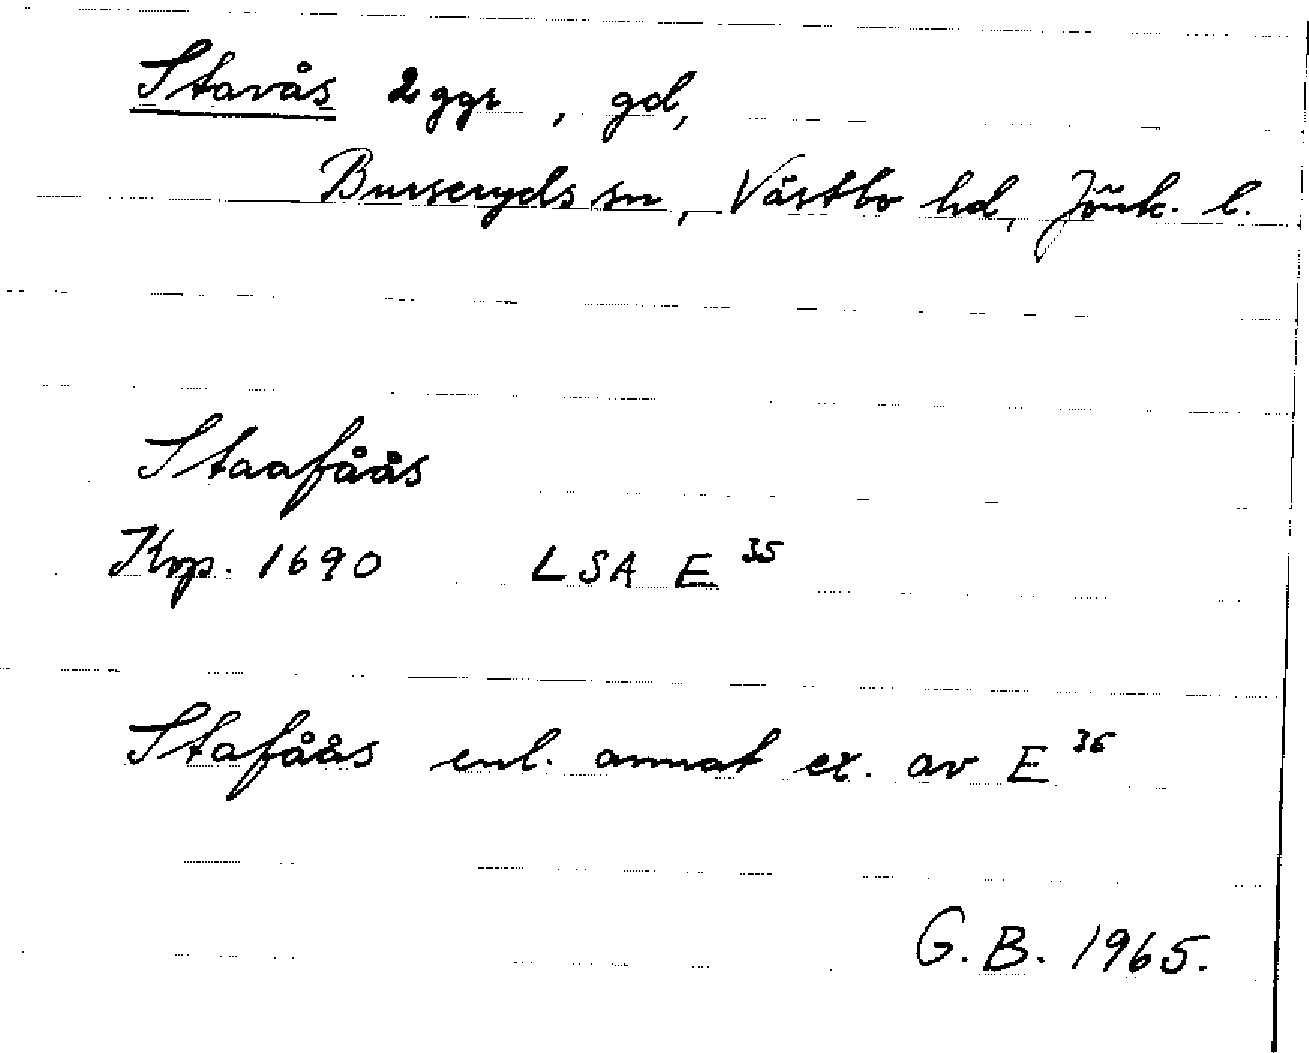 Stavås 2 ggr, gd,
Burseryds sn, Västbo hd, Jönk. l.
Staafåås
Krp. 1690 LSA E 35
Stafåås enl. annat ex. av E 36
G. B. 1965.